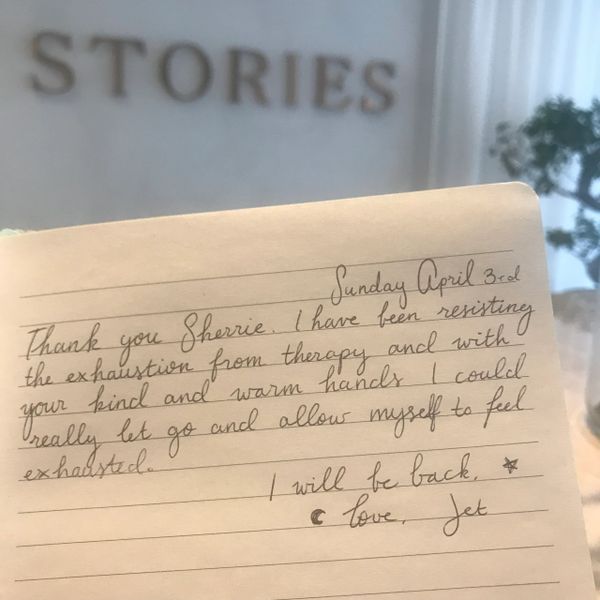 STORIES
Sunday April 3rd
Thank you Sherrie. I have been resisting
the exhaustion from therapy and with
your kind and warm hands I could
really let go and allow myself to feel
exhausted.
I will be back.
love, Jet